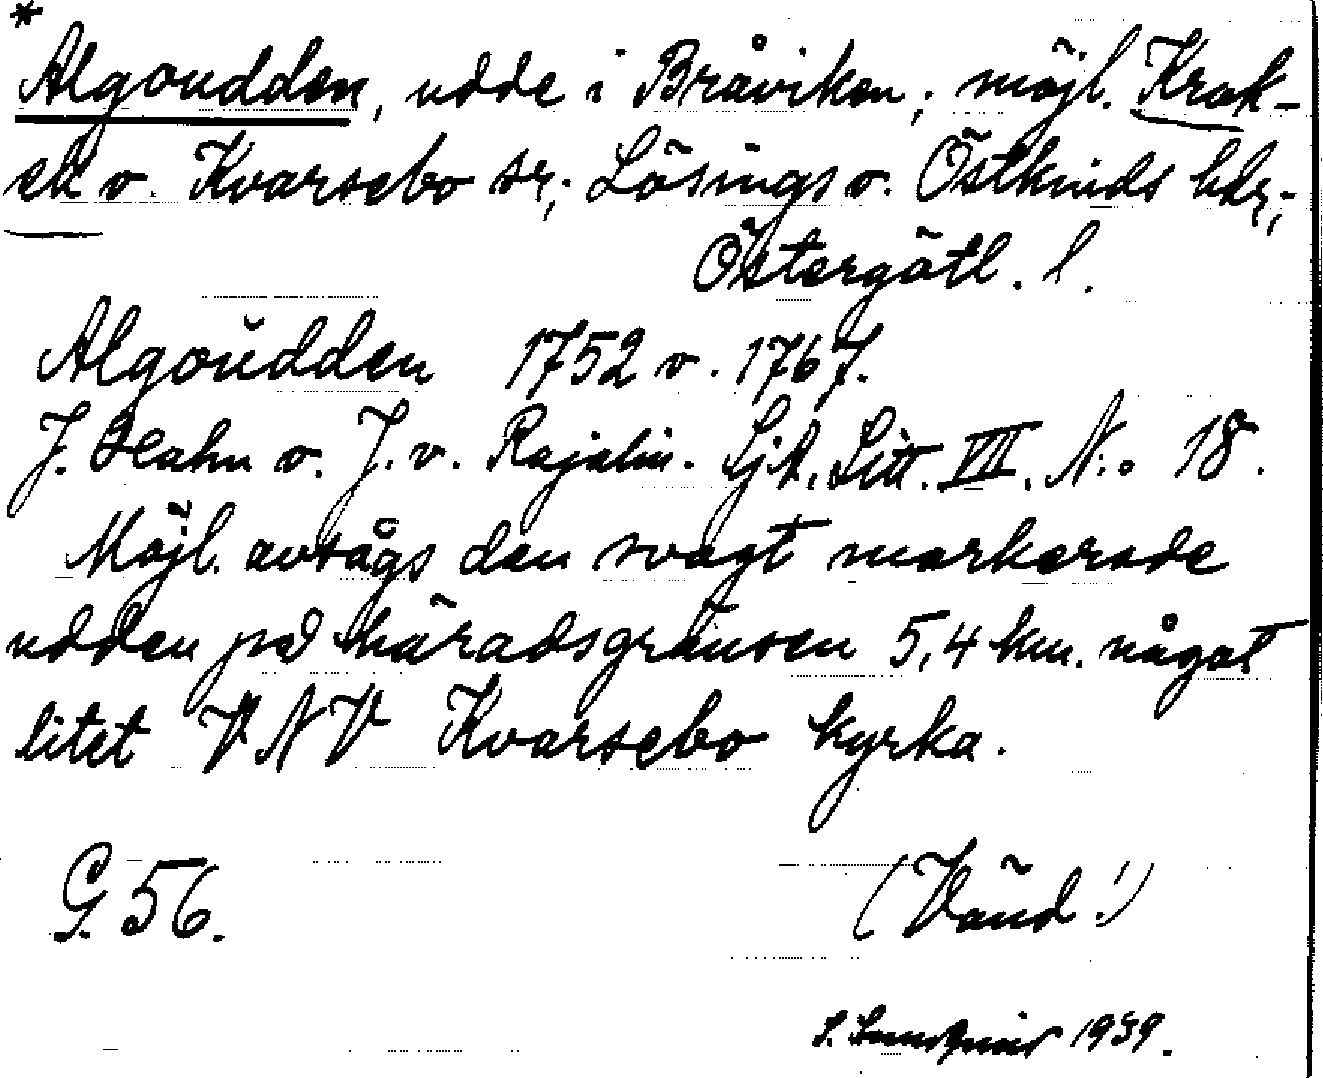 *
Algoudden, udde i Bråviken; möjl. Krok-
ek o. Kvarsebo sr; Lösings o. Östkinds hdr;
Östergötl. l.
Algoŭdden 1752 o. 1767.
J. Hahn o. J. v. Rajalin. SjA. Litt. VII. N:o 18.
Möjl. avsågs den svagt markerade
udden på häradsgränsen 5,4 km. något
litet VNV Kvarsebo kyrka.
G. 56.
(Vänd!)
S. 1939.